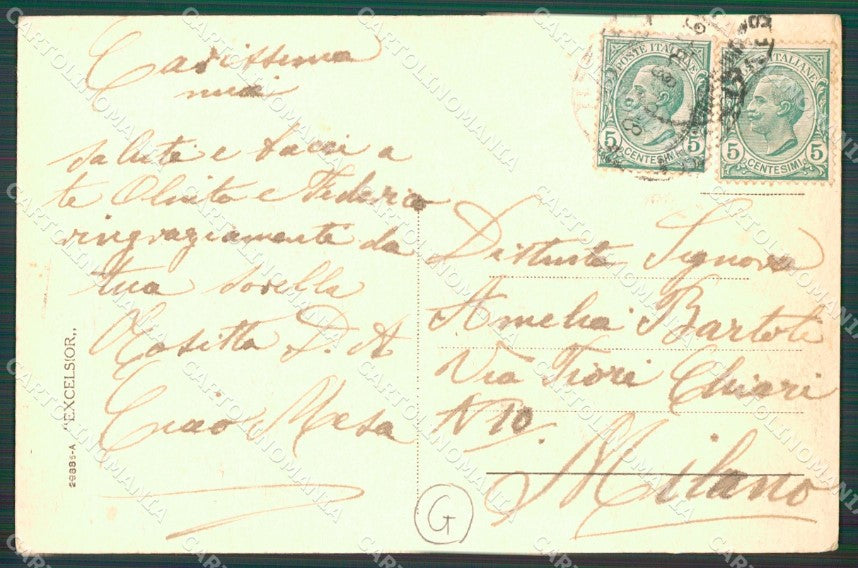 Carissima
mia
Salute e bacci a
te Olinta e Federico
ringraziamente da
tua sorella
Rositta D. A
Ciao Mesa
Distinta Signora
Amelia Bartoli
Via Fiori Chiari
N 10.
Milano
POSTE ITALIANE
5 5
CENTESIMI
POSTE ITALIANE
5 5
CENTESIMI
"EXCELSIOR"
G
CARTOLINOMANIA